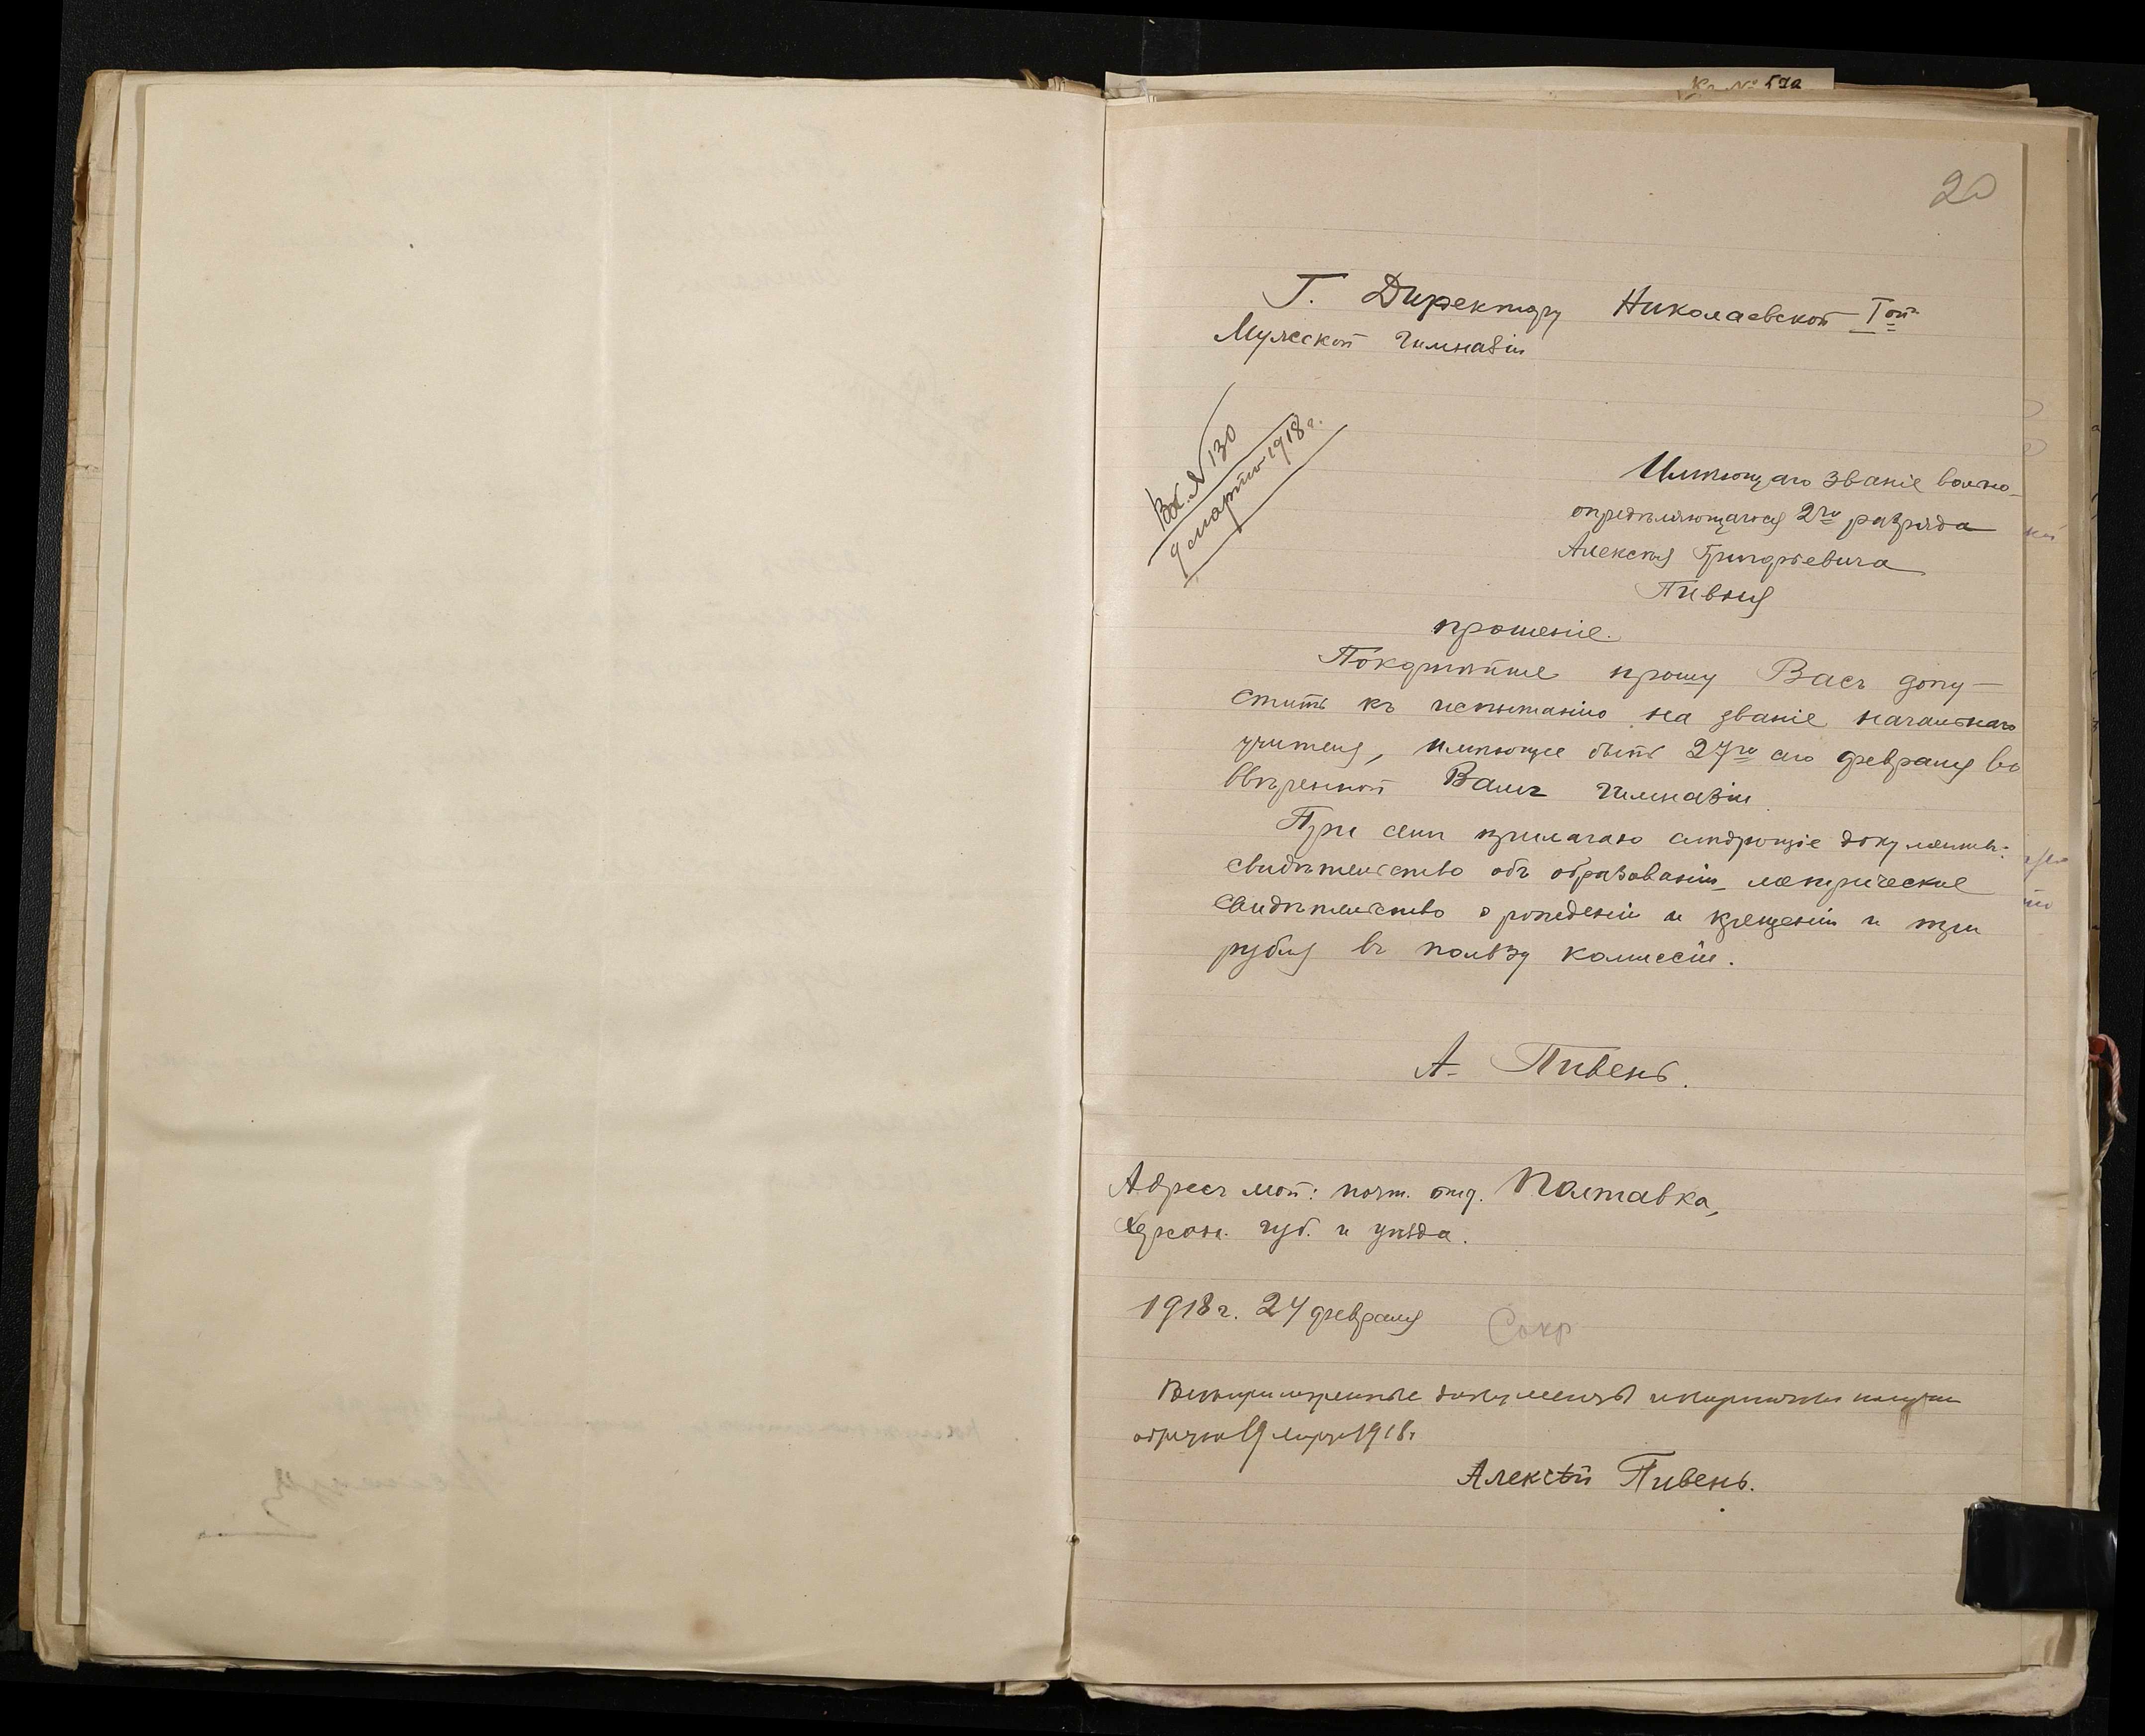 Кр. № 572
20
Г. Директору Николаевской I ой
Мужской Гимназіи
Вх. № 130
9 марта 1918 г.
Имѣющаго званіе вольно-
опредѣляющагося 2го разряда
Алексѣя Григорьевича
Пивня
прошеніе.
Покорнѣйше прошу Васъ допу-
стить къ испытанію на званіе начальнаго
учителя, имѣющее быть 27го сего февраля во
ввѣренной Вамъ Гимназіи.
При семъ прилагаю слѣдующіе документы:
свидѣтельство объ образованіи, метрическое
свидѣтельство о рожденіи и крещеніи и три
рубля въ пользу комиссіи.
А. Пивень.
Адресъ мой: почт. отд. Полтавка,
Херсон. губ. и уѣзда.
1918 г. 24 февраля
Сокр
документы
обратно 19 марта 1918 г
Алексѣй Пивень.